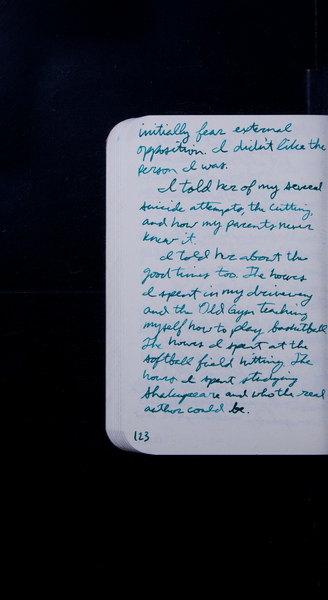 initially fear external
opposition. I didn't like the
person I was.
I told her of my several
suicide attempts, the cutting,
and how my parents never
knew it.
I told her about the
good times too. The hours
I spent in my driveway
and the Old Gym teaching
myself how to play basketball
The hours I spent at the
softball field hitting. The
hours I spent studying
Shakespeare and who the real
author could be.
123